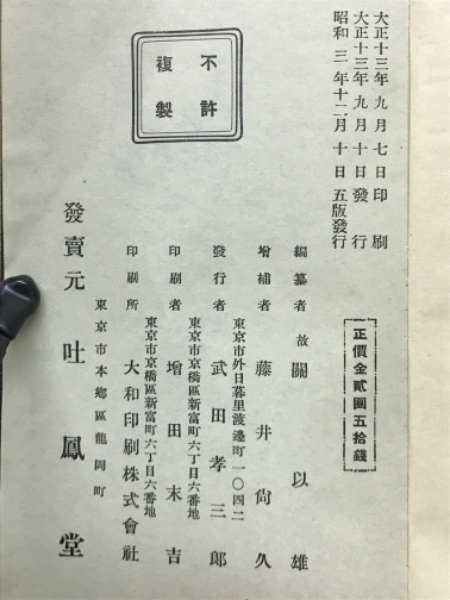 大正十三年九月七日印刷
大正十三年九月十日發行
昭和三年十二月十日五版發行
不許
複製
正價金貳圓五拾錢
編纂者 故 關以雄
增補者 藤井尙久
東京市外日暮里渡邊町一〇四二
發行者 武田孝三郎
東京市京橋區新富町六丁目六番地
印刷者 增田末吉
東京市京橋區新富町六丁目六番地
印刷所 大和印刷株式會社
東京市本鄕區龍岡町
發賣元 吐鳳堂